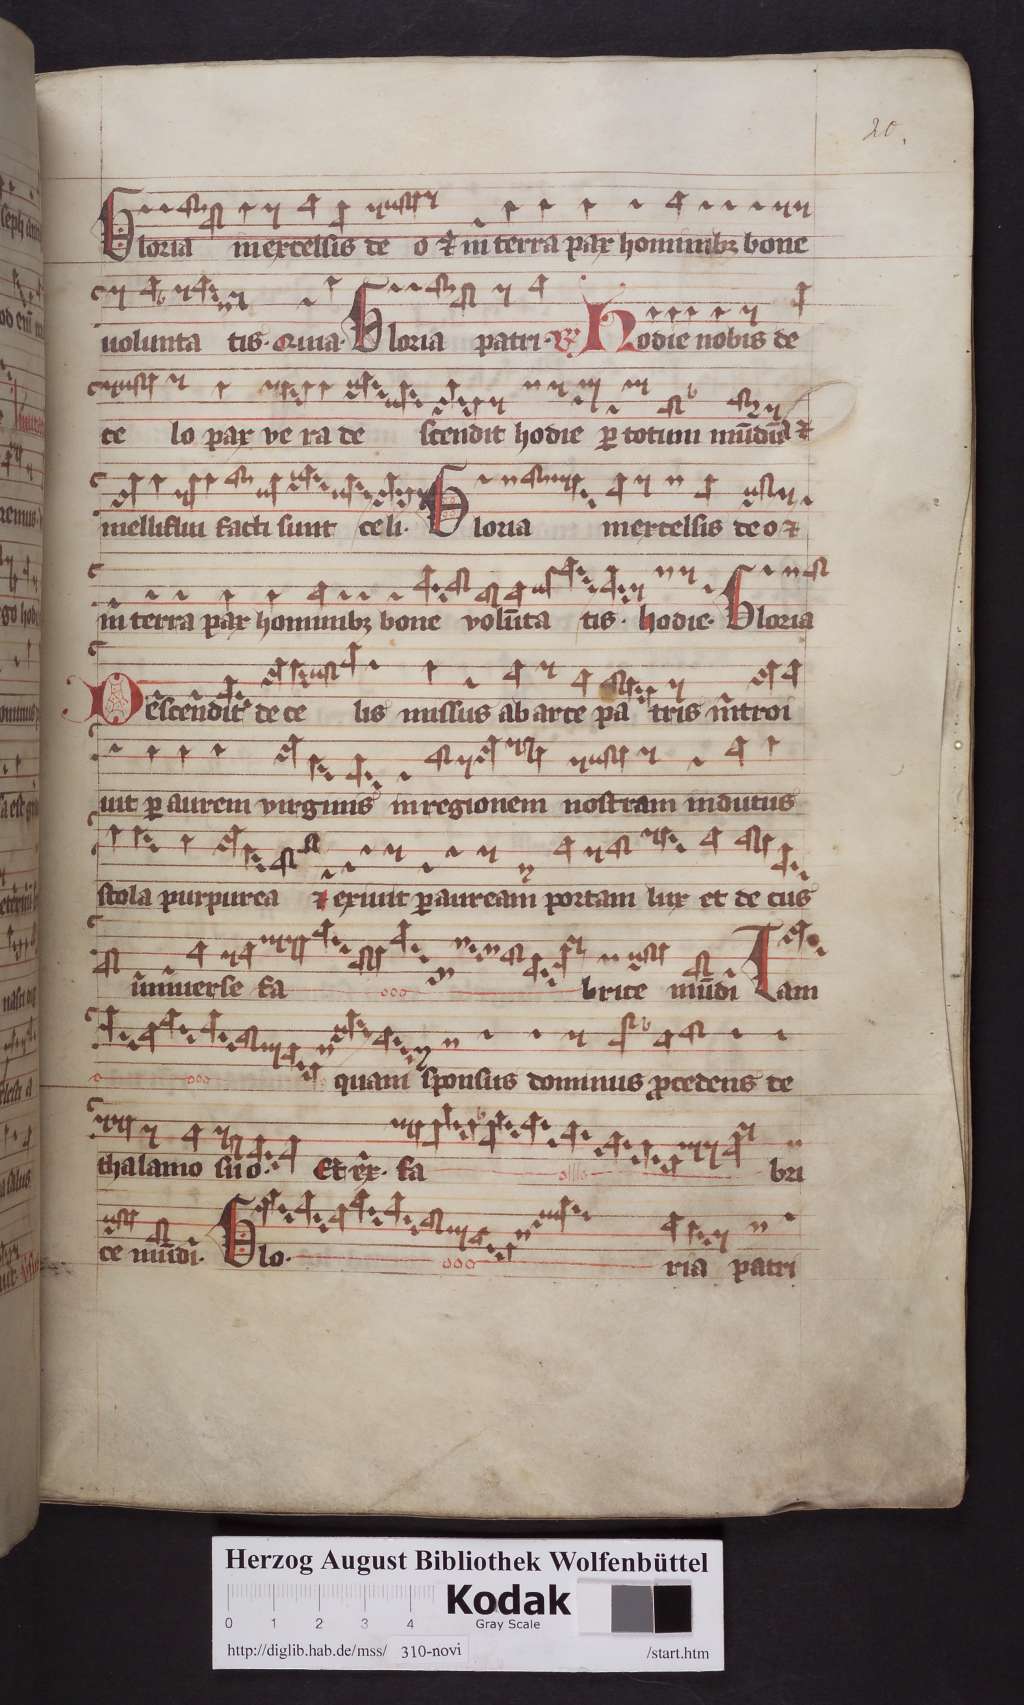 20.
Gloria inexcelsis de o & in terra pax hominibꝫ bone
uolunta tis. Quia. Gloria patri. R̷ Hodie nobis de
ce lo pax ve ra de scendit hodie ꝑ totum mūdū &
melliflui facti sunt celi. Gloria inexcelsis de o &
in terra pax hominibꝫ bone volūta tis. hodie. Gloria
Descendit de ce lis missus ab arce pa tris introi
uit ꝑ aurem virginis in regionem nostram indutus
stola purpurea & exiuit ꝑ auream portam lux et de cus
uniuerse fa brice mūdi Tam
quam sponsus dominus ꝓcedens de
thalamo su o. Et ex. fa bri
ce mūdi. Glo. ria patri
Herzog August Bibliothek Wolfenbüttel
0 1 2 3 4
Kodak
Gray Scale
http://diglib.hab.de/mss/ 310-novi /start.htm